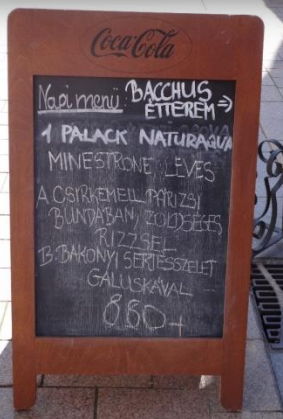 Coca-Cola
Napi menü: BACCHUS
ÉTTEREM ⇒
1 PALACK NATURAQUA
MINESTRONE LEVES
A. CSIRKEMELL PÁRIZSI
BUNDÁBAN, ZÖLDSÉGES
RIZZSEL
B. BAKONYI SERTÉSSZELET
GALUSKÁVAL
880+